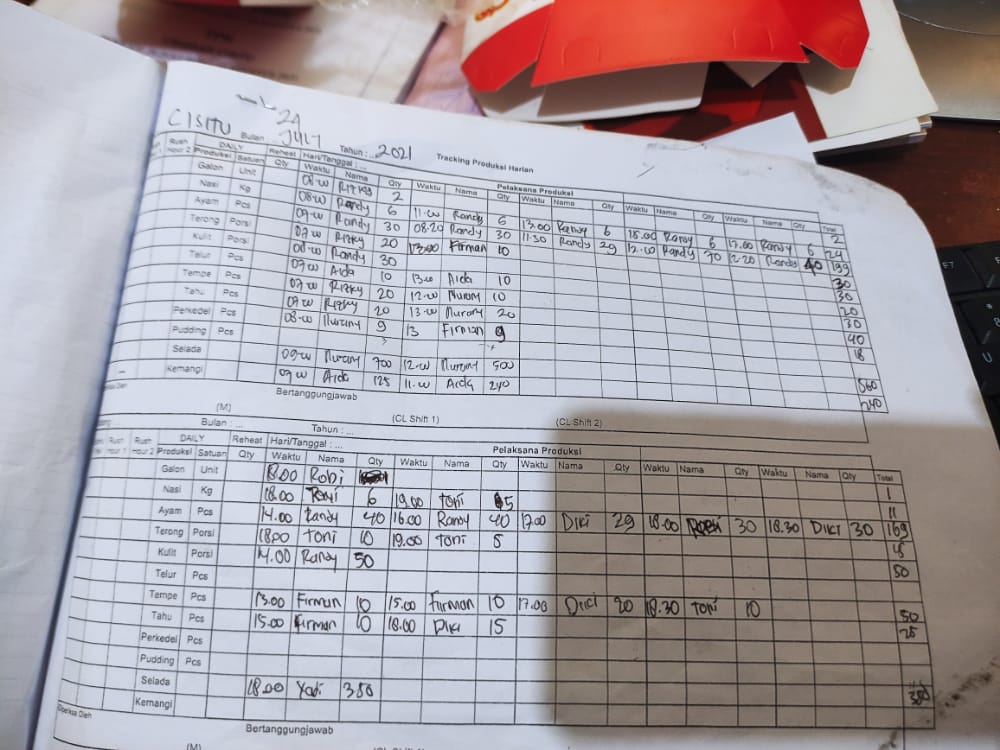 CISITU Bulan : JULI 24 Tahun : ... 2021 Tracking Produksi Harian
Rush Hour 2 DAILY Reheat Hari/Tanggal : ... Pelaksana Produksi
Produksi Satuan Qty Waktu Nama Qty Waktu Nama Qty Waktu Nama Qty Waktu Nama Qty Waktu Nama Qty Total
Galon Unit 08.00 Rizky 2 2
Nasi Kg 08.00 Randy 6 11.00 Randy 6 13.00 Randy 6 18.00 Randy 6 17.00 Randy 6 24
Ayam Pcs 09.00 Randy 30 08.20 Randy 30 11.30 Randy 29 12.00 Randy 70 12.20 Randy 40 199
Terong Porsi 07.00 Rizky 20 13.00 Firman 10 30
Kulit Porsi 08.00 Randy 30 30
Telur Pcs 07.00 Aida 10 13.00 Aida 10 20
Tempe Pcs 07.00 Rizky 20 12.00 Nurany 10 30
Tahu Pcs 07.00 Rizky 20 13.00 Nurany 20 40
Perkedel Pcs 08.00 Nurany 9 13 Firman 9 18
Pudding Pcs
Selada 09.00 Nurany 700 12.00 Nurany 500 560
Kemangi 09.00 Aida 125 11.00 Aida 240 240
Bertanggungjawab
(M) (CL Shift 1) (CL Shift 2)
Bulan : ... Tahun : ...
Rush Hour 1 Rush Hour 2 DAILY Reheat Hari/Tanggal : ... Pelaksana Produksi
Produksi Satuan Qty Waktu Nama Qty Waktu Nama Qty Waktu Nama Qty Waktu Nama Qty Waktu Nama Qty Total
Galon Unit 18.00 Robi 1
Nasi Kg 18.00 Toni 6 19.00 Toni 5 11
Ayam Pcs 14.00 Randy 40 16.00 Randy 40 17.00 Diki 29 18.00 Robi 30 18.30 Diki 30 169
Terong Porsi 18.00 Toni 10 19.00 Toni 5
Kulit Porsi 14.00 Randy 50 50
Telur Pcs
Tempe Pcs 13.00 Firman 10 15.00 Firman 10 17.00 Diki 20 18.30 Toni 10 50
Tahu Pcs 15.00 Firman 10 18.00 Diki 15 25
Perkedel Pcs
Pudding Pcs
Selada 18.00 Yadi 350 350
Kemangi
Diperiksa Oleh Bertanggungjawab
(M)